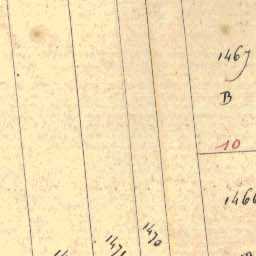 1467
B
10
1466
1470
1471